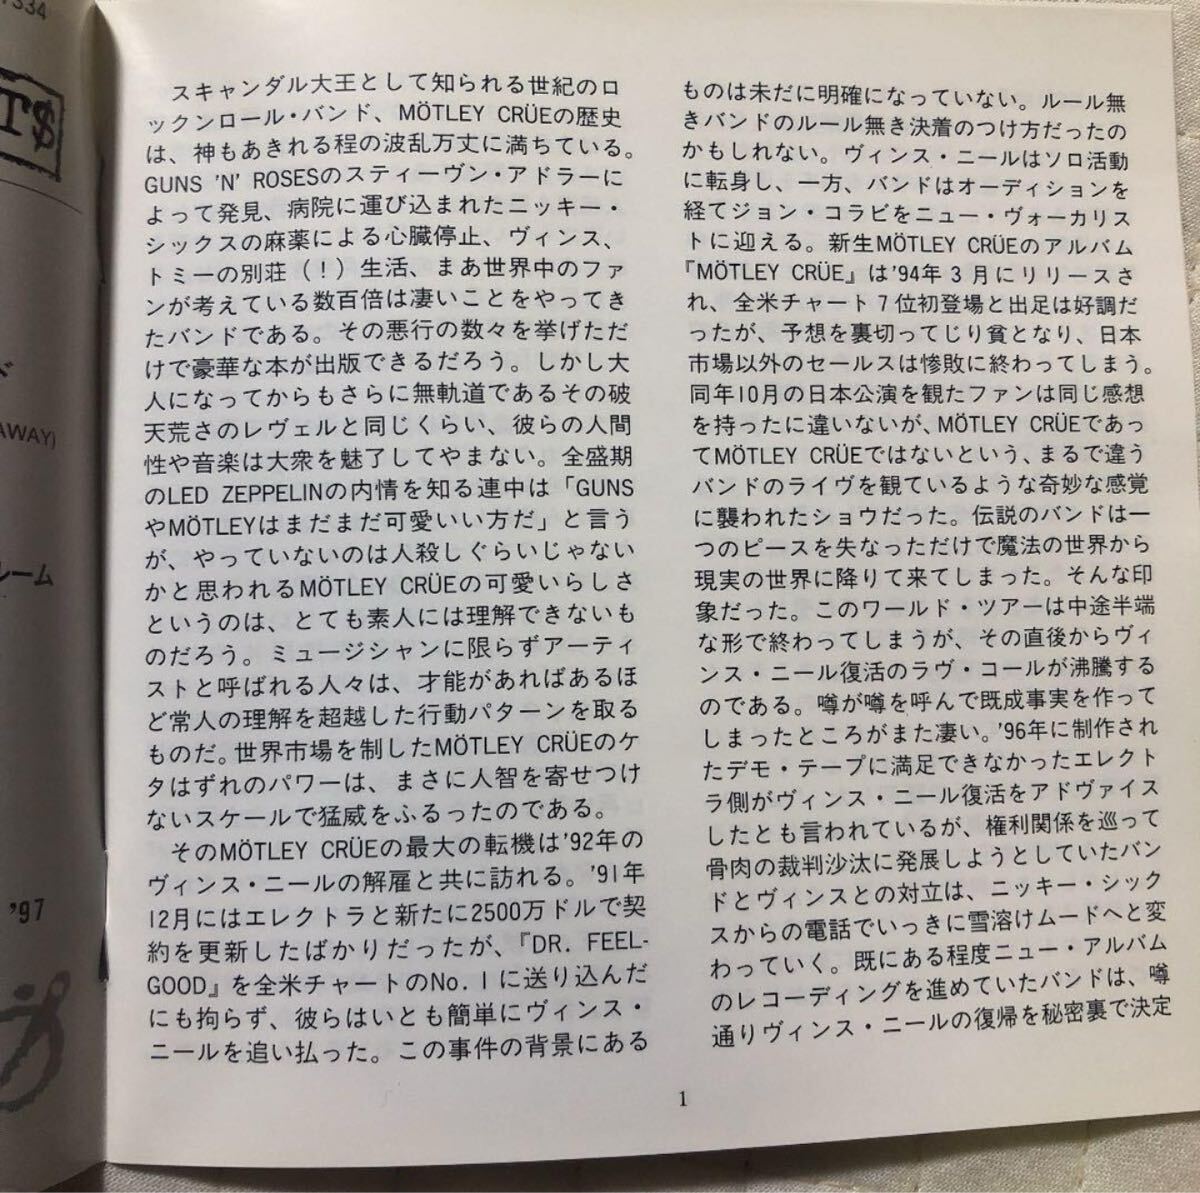 1334
T$
ド
AWAY)
ルーム
'97
スキャンダル大王として知られる世紀のロ
ックンロール・バンド、MÖTLEY CRÜEの歴史
は、神もあきれる程の波乱万丈に満ちている。
GUNS 'N' ROSESのスティーヴン・アドラーに
よって発見、病院に運び込まれたニッキー・
シックスの麻薬による心臓停止、ヴィンス、
トミーの別荘（！）生活、まあ世界中のファ
ンが考えている数百倍は凄いことをやってき
たバンドである。その悪行の数々を挙げただ
けで豪華な本が出版できるだろう。しかし大
人になってからもさらに無軌道であるその破
天荒さのレヴェルと同じくらい、彼らの人間
性や音楽は大衆を魅了してやまない。全盛期
のLED ZEPPELINの内情を知る連中は「GUNS
やMÖTLEYはまだまだ可愛いい方だ」と言う
が、やっていないのは人殺しぐらいじゃない
かと思われるMÖTLEY CRÜEの可愛いらしさ
というのは、とても素人には理解できないも
のだろう。ミュージシャンに限らずアーティ
ストと呼ばれる人々は、才能があればあるほ
ど常人の理解を超越した行動パターンを取る
ものだ。世界市場を制したMÖTLEY CRÜEのケ
タはずれのパワーは、まさに人智を寄せつけ
ないスケールで猛威をふるったのである。
そのMÖTLEY CRÜEの最大の転機は'92年の
ヴィンス・ニールの解雇と共に訪れる。'91年
12月にはエレクトラと新たに2500万ドルで契
約を更新したばかりだったが、『DR. FEEL-
GOOD』を全米チャートのNo. 1に送り込んだ
にも拘らず、彼らはいとも簡単にヴィンス・
ニールを追い払った。この事件の背景にある
ものは未だに明確になっていない。ルール無
きバンドのルール無き決着のつけ方だったの
かもしれない。ヴィンス・ニールはソロ活動
に転身し、一方、バンドはオーディションを
経てジョン・コラビをニュー・ヴォーカリス
トに迎える。新生MÖTLEY CRÜEのアルバム
『MÖTLEY CRÜE』は'94年3月にリリースさ
れ、全米チャート7位初登場と出足は好調だ
ったが、予想を裏切ってじり貧となり、日本
市場以外のセールスは惨敗に終わってしまう。
同年10月の日本公演を観たファンは同じ感想
を持ったに違いないが、MÖTLEY CRÜEであっ
てMÖTLEY CRÜEではないという、まるで違う
バンドのライヴを観ているような奇妙な感覚
に襲われたショウだった。伝説のバンドは一
つのピースを失なっただけで魔法の世界から
現実の世界に降りて来てしまった。そんな印
象だった。このワールド・ツアーは中途半端
な形で終わってしまうが、その直後からヴィ
ンス・ニール復活のラヴ・コールが沸騰する
のである。噂が噂を呼んで既成事実を作って
しまったところがまた凄い。'96年に制作され
たデモ・テープに満足できなかったエレクト
ラ側がヴィンス・ニール復活をアドヴァイス
したとも言われているが、権利関係を巡って
骨肉の裁判沙汰に発展しようとしていたバン
ドとヴィンスとの対立は、ニッキー・シック
スからの電話でいっきに雪溶けムードへと変
わっていく。既にある程度ニュー・アルバム
のレコーディングを進めていたバンドは、噂
通りヴィンス・ニールの復帰を秘密裏で決定
1